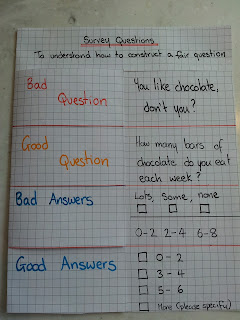 Survey Questions
To understand how to construct a fair question
Bad
Question
You like chocolate,
don't you?
Good
Question
How many bars of
chocolate do you eat
each week?
Bad Answers
Lots, Some, none
0-2 2-4 6-8
Good Answers
0-2
3-4
5-6
More (please specify)